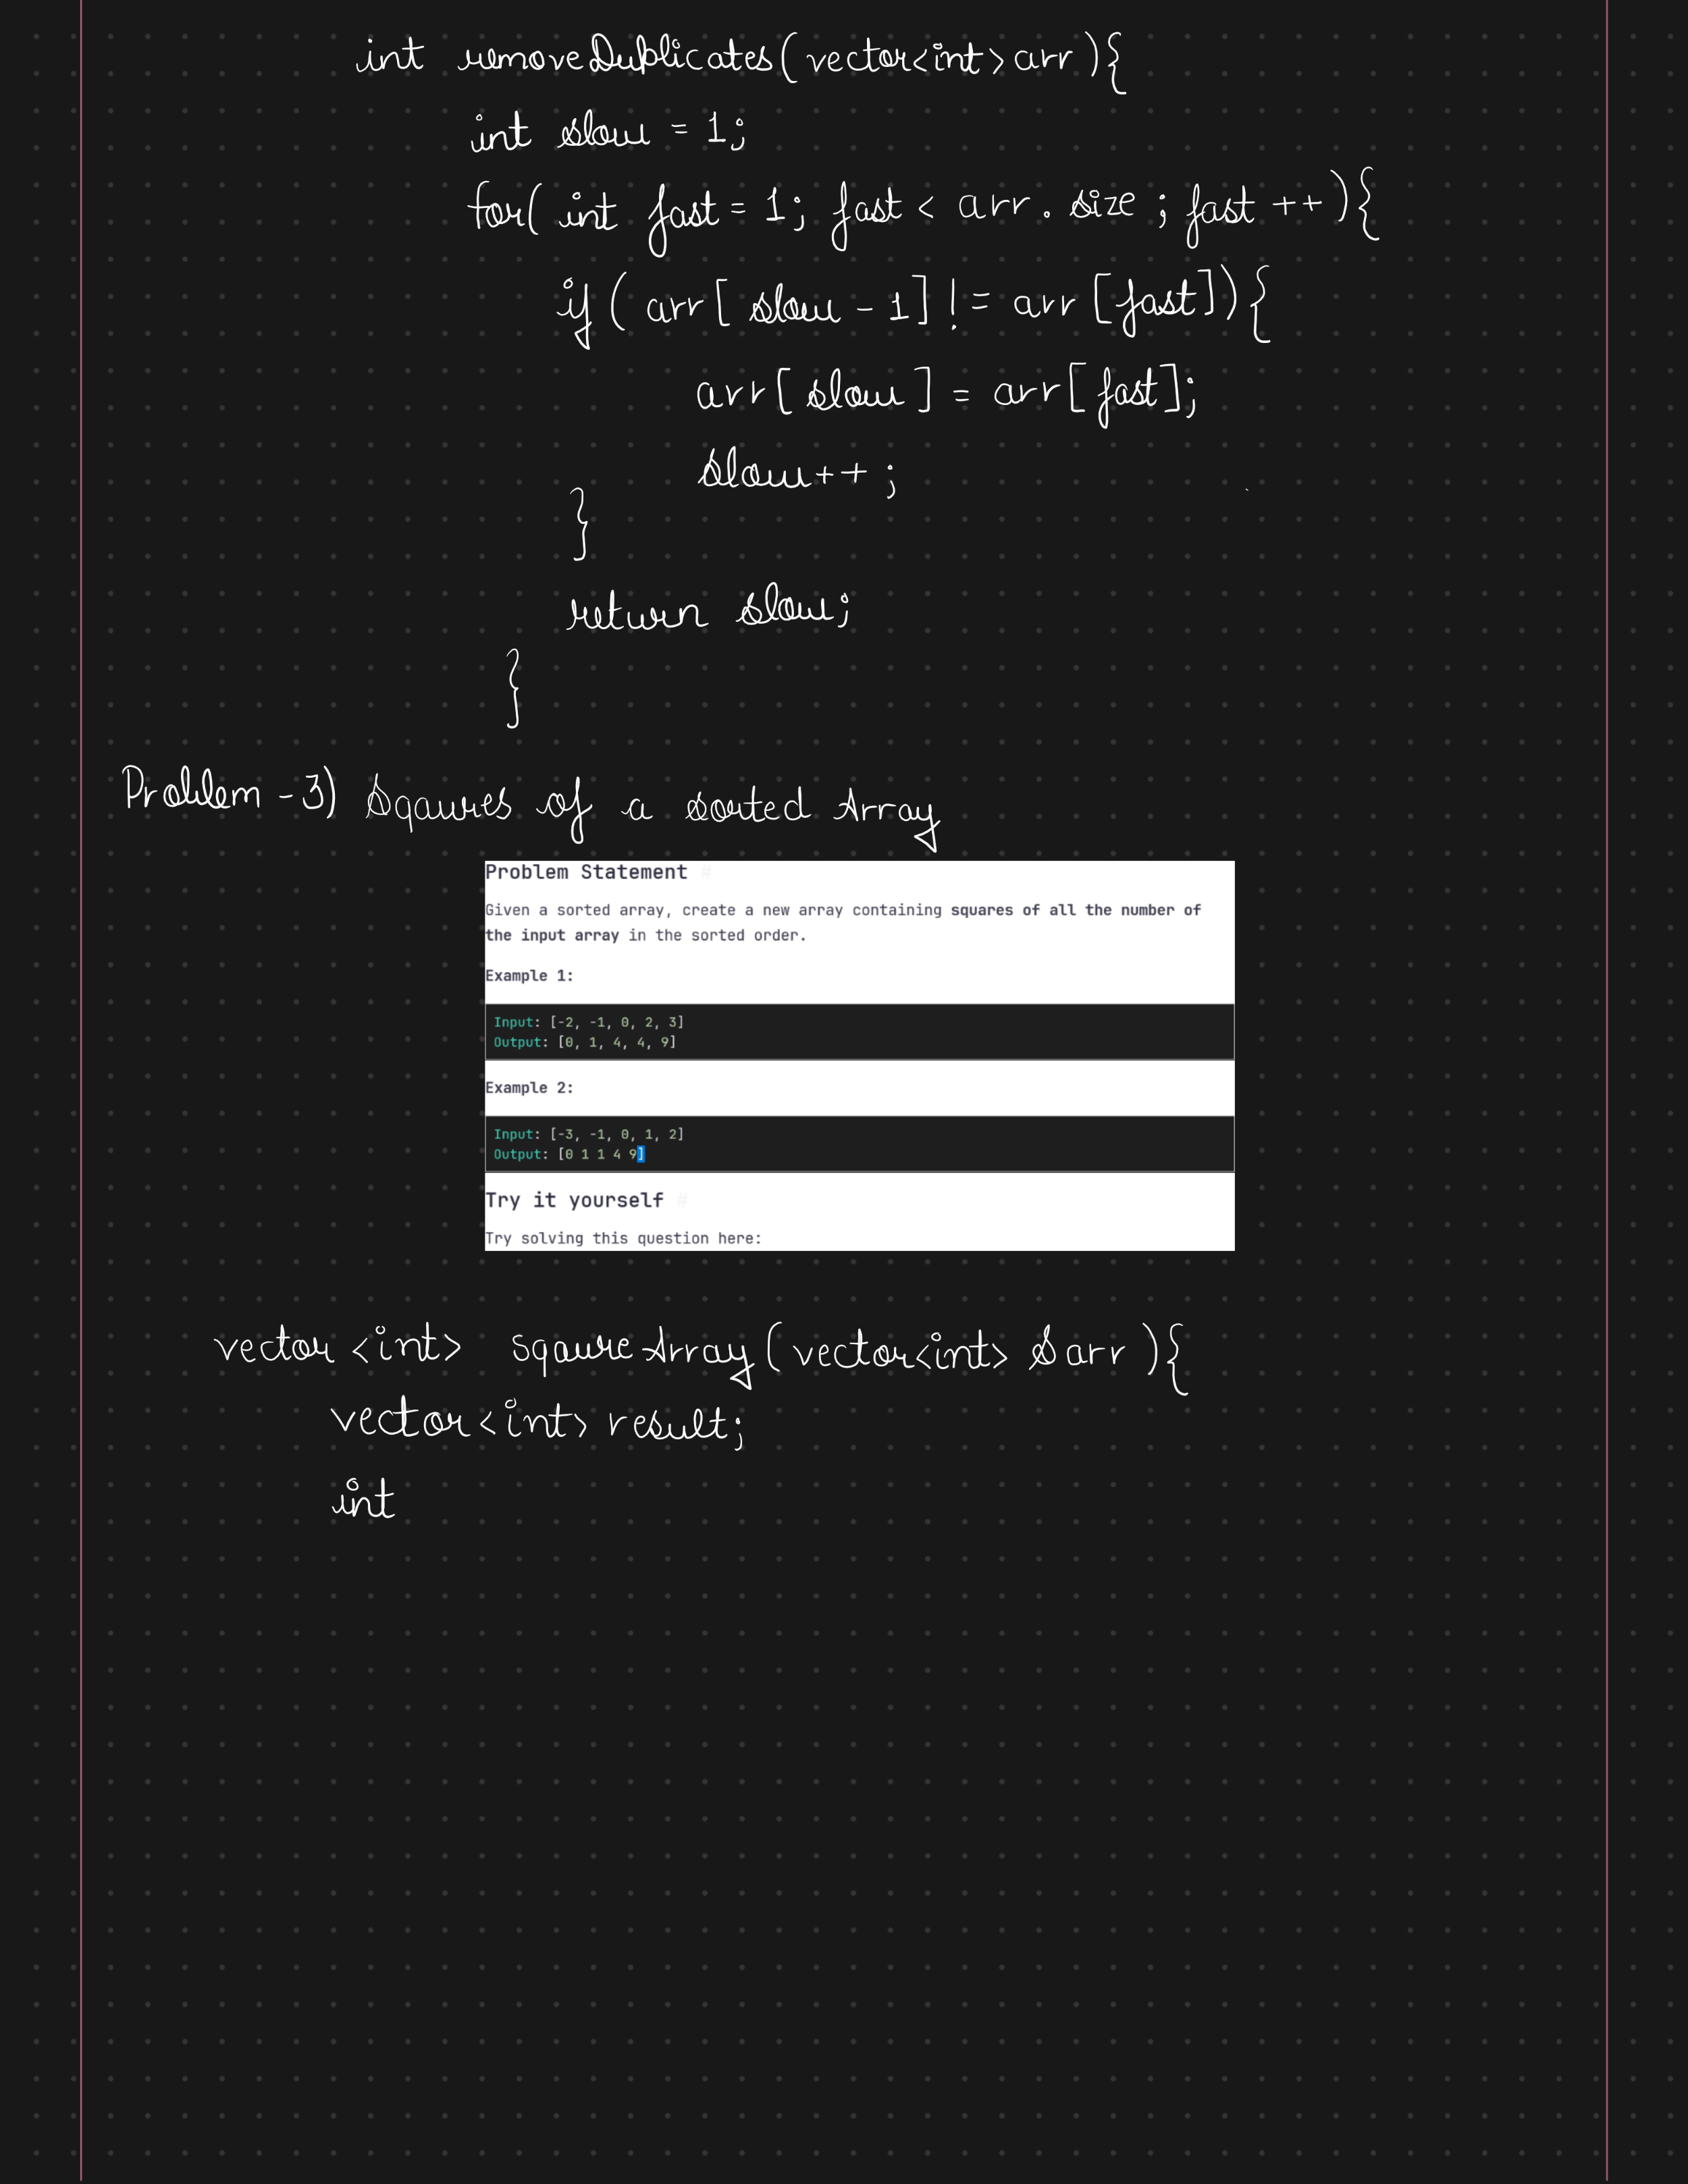 int removeDuplicates(vector<int> arr){
int slow = 1;
for( int fast = 1; fast < arr. size ; fast ++){
if ( arr[ slow - 1] != arr [fast]){
arr[ slow ] = arr[ fast];
slow++ ;
}
return slow;
}
Problem - 3) Sqaures of a sorted Array
Problem Statement #
Given a sorted array, create a new array containing squares of all the number of
the input array in the sorted order.
Example 1:
Input: [-2, -1, 0, 2, 3]
Output: [0, 1, 4, 4, 9]
Example 2:
Input: [-3, -1, 0, 1, 2]
Output: [0 1 1 4 9]
Try it yourself #
Try solving this question here:
vector <int> sqaureArray(vector<int> &arr ){
vector<int> result;
int